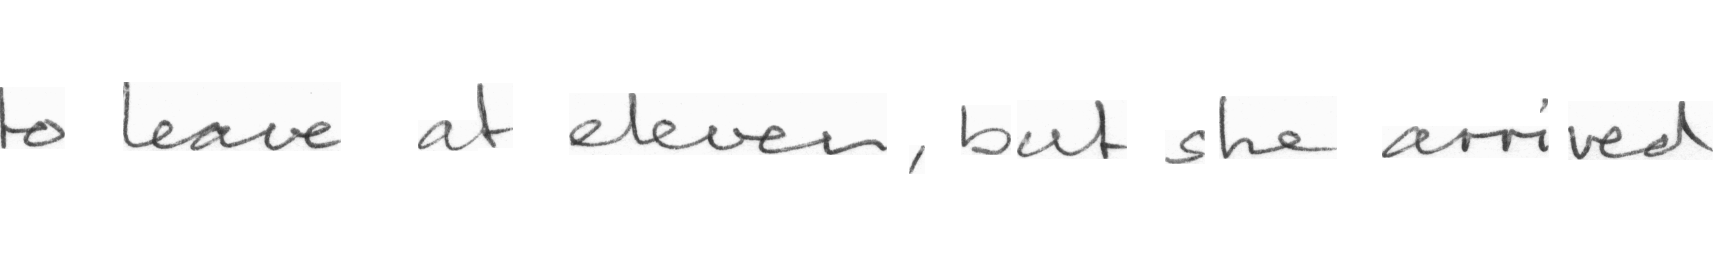 to leave at eleven, but she arrived